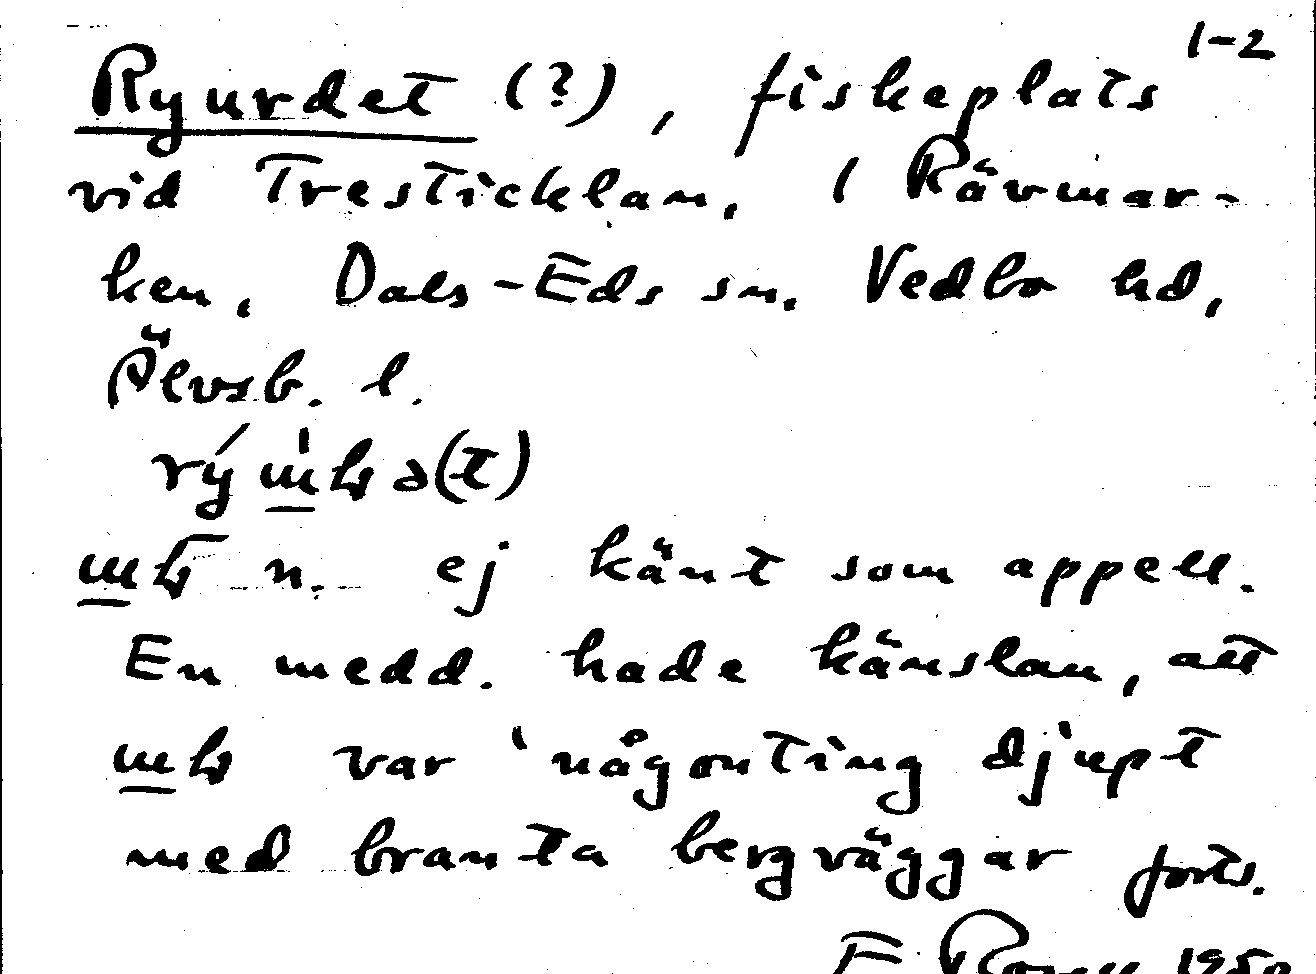 1-2
Ryurdet (?), fiskeplats
vid Tresticklan, i Rävmar-
ken, Dals-Eds sn, Vedbo hd,
Älvsb. l.
n. ej känt som appell.
En medd. hade känslan, att
var 'någonting djupt
med branta bergväggar forts.